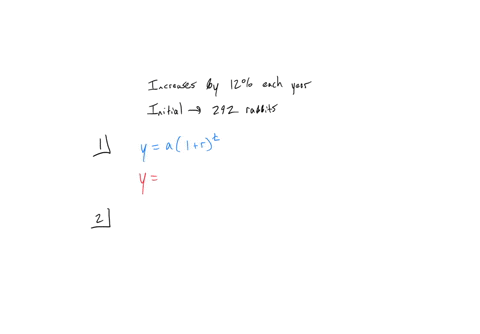 Increases By 12% each year
Initial → 292 rabbits
1] y = a(1+r)^t
y =
2]